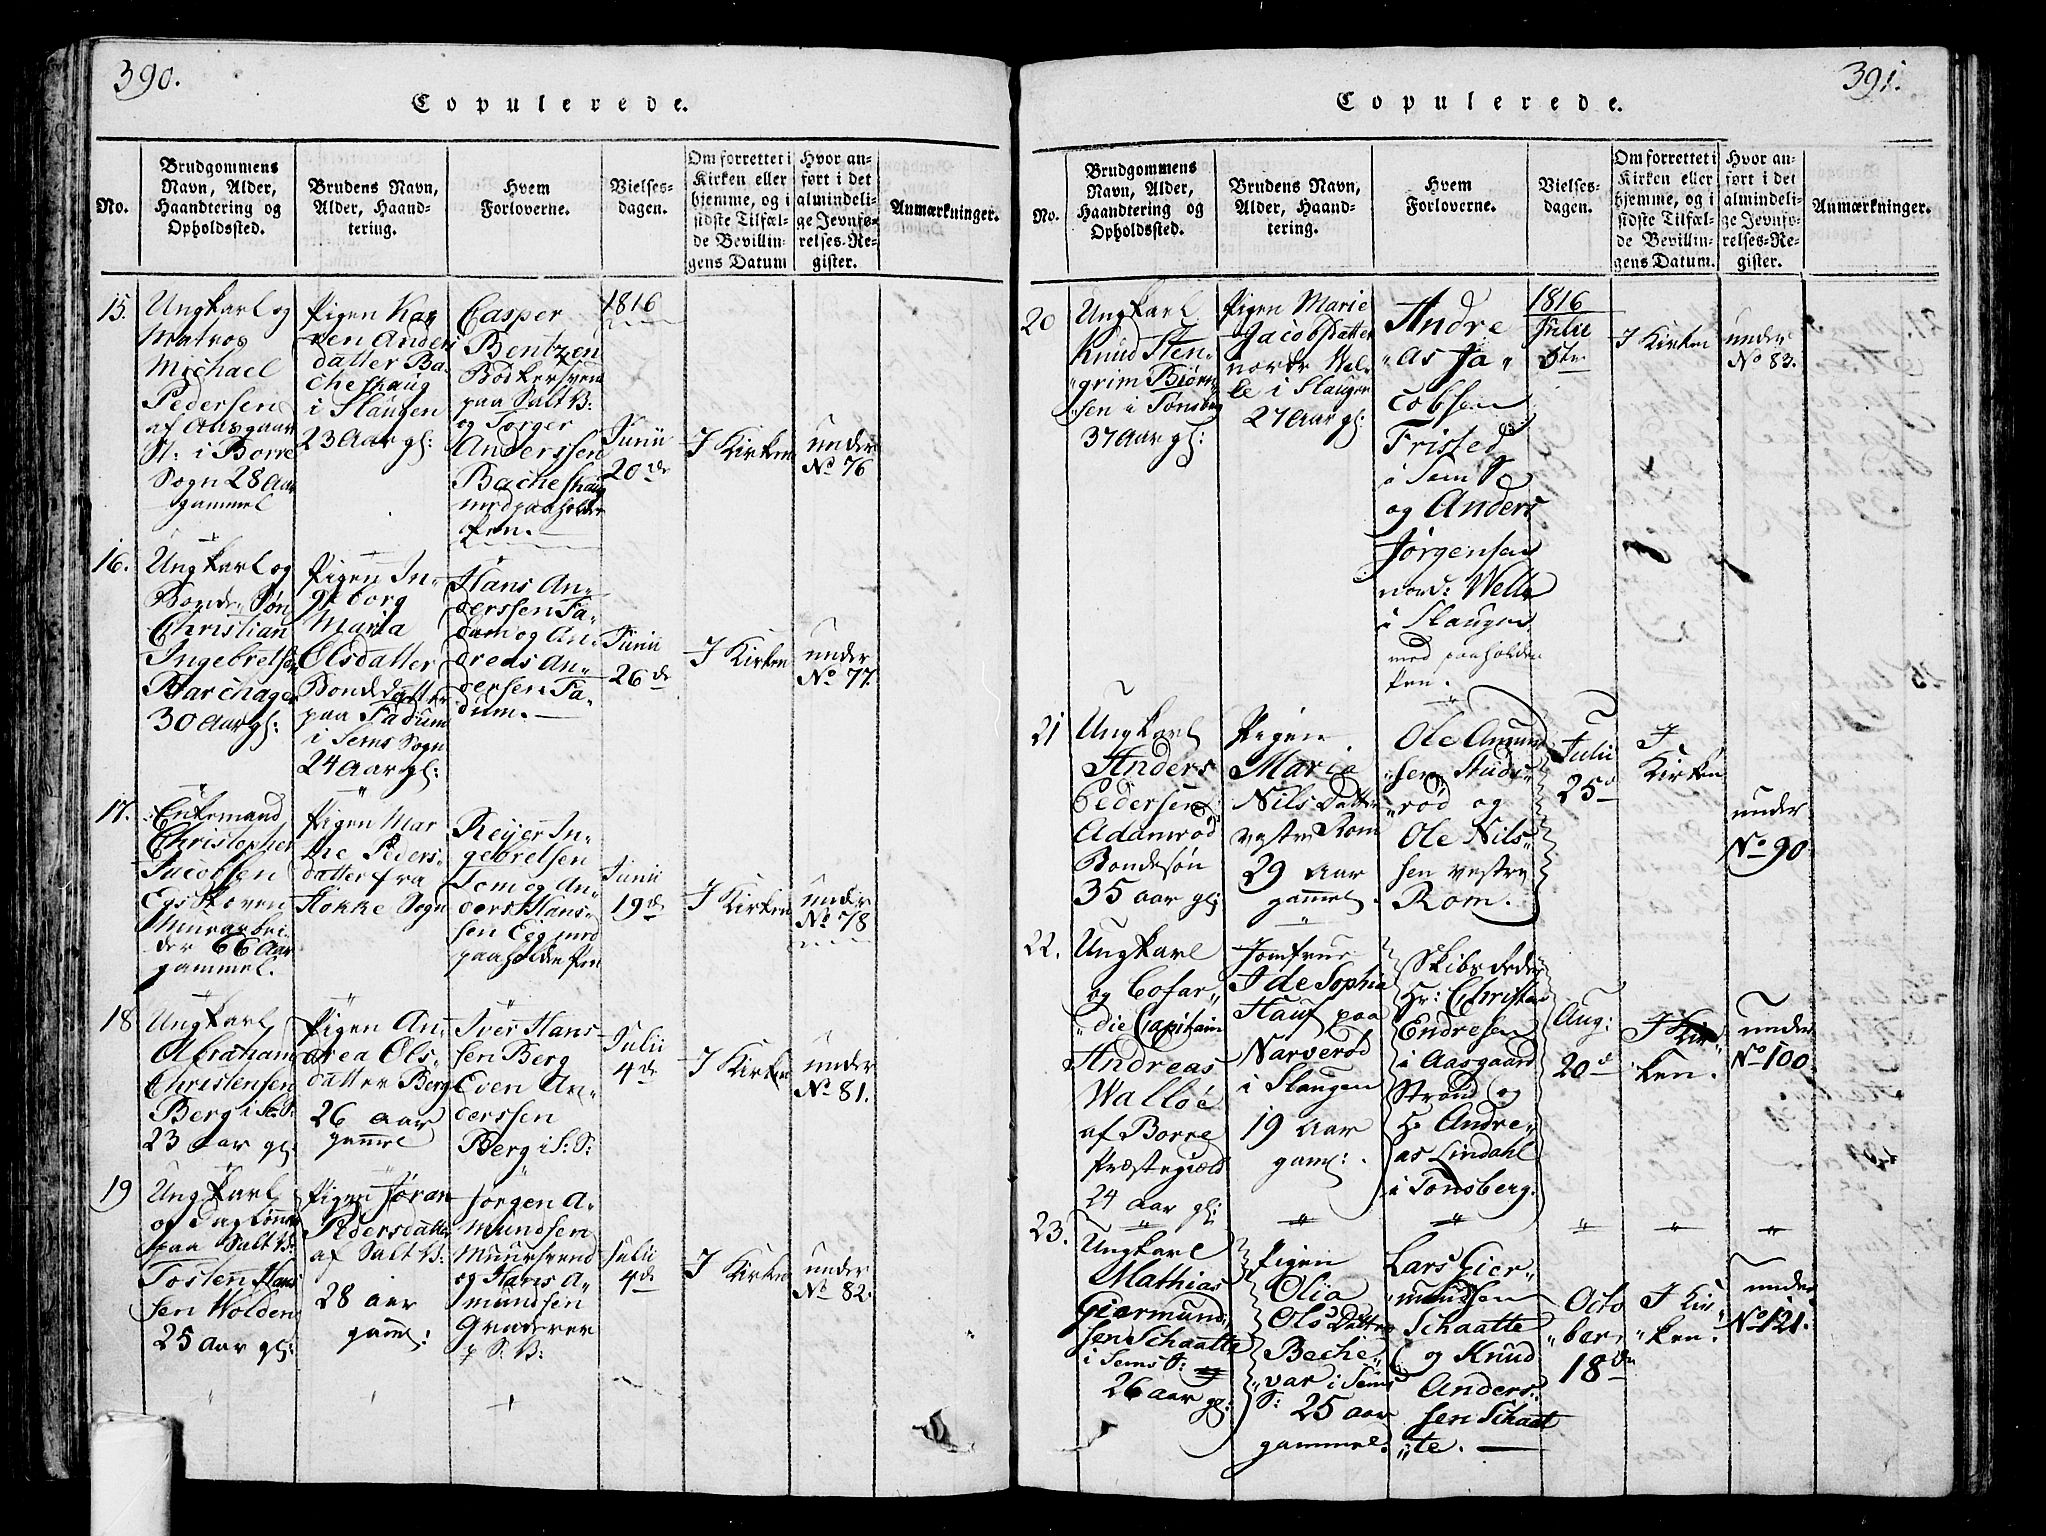 390.
Copulerede.
No.
Brudgommens
Navn, Alder,
Haandtering og
Opholdssted.
Brudens Navn,
Alder, Haand-
tering.
Hvem
Forloverne.
Vielses-
dagen.
Om forrettet i
Kirken eller
hjemme, og i
sidste Tilfæl-
de Bevillin-
gens Datum
Hvor an-
ført i det
almindeli-
ge Jevnfø-
relses-Re-
gister.
Anmærkninger.
15.
Ungkarl og
Matros
Michael
Pedersen
af Aasgaar
St: i Borre
Sogn 28 Aar
gammel
Pigen Ka-
ren Anders
datter Ba-
cheshaug
i Slaugen
23 Aar gl:
Casper
Bentzen
Bödkersvend
paa Salt V:
og Torger
Anderssen
Bacheshaug
med paaholden
Pen.
1816
Junii
20de
I Kirken
under
No 76
16.
Ungkarl og
Bonde Søn
Christian
Ingebretsen
Barchager
30 Aar gl:
Pigen In-
geborg
Maria
Olsdatter
Bondedatter
paa Fadum
i Sems Sogn
24 Aar gl:
Hans An-
derssen Fa-
dum og An-
dreas An-
dersen Fa-
dum.
Junii
26de
I Kirken
under
No 77.
17.
Enkemand
Christopher
Jacobsen
Egskoven
Minearbei-
der 66 Aar
gammel.
Pigen Mar
the Peders-
datter fra
Høkke Sogn
Reyer In-
gebretsen
Tom og An-
ders Hans-
sen Eeg med
paaholden Pen
Junii
19de
I Kirken
under
No 78
18
Ungkarl
Abraham
Christensen
Berg i S: S:
23 aar gl.
Pigen An-
drea Ols-
datter Berg
26 aar
gammel
Iver Hans-
sen Berg
Even An-
derssen
Berg i S: S:
Julii
4de
I Kirken
under
No 81.
19
Ungkarl
og Daglønner
paa Salt V:
Tosten Hans
sen Wolden
25 Aar gl:
Pigen Jøran
Pedersdatter
af Salt V:
28 aar
gaml:
Jørgen A-
mundsen
Muursvend
og Hans A-
mundsen
Graderer
p S: V:
Julii
4de
I Kirken
under
No 82.
391.
Copulerede.
No.
Brudgommens
Navn, Alder,
Haandtering og
Opholdssted.
Brudens Navn,
Alder, Haand-
tering.
Hvem
Forloverne.
Vielses-
dagen.
Om forrettet i
Kirken eller
hjemme, og i
sidste Tilfæl-
de Bevillin-
gens Datum.
Hvor an-
ført i det
almindeli-
ge Jevnfø-
relses-Re-
gister.
Anmærkninger.
20
Ungkarl
Knud Sten-
grim Biørn-
sen i Tønsberg
37 Aar gl:
Pigen Marie
Jacobsdatter
nordr Wel-
le i Slaugen
27 Aar gl:
Andre
as Ja
cobsen
Fristed
i Sem S
og Anders
Jørgensen
nord: Welle
i Slaugen
med paaholden
Pen.
1816
Julii
5te
I Kirken
under
No 83.
21
Ungkarl
Anders
Pedersen
Adamrød
Bondesøn
35 aar gl:
Pigen
Marie
Nils Datter
vestre Rom
29 Aar
gammel.
Ole Amund
sen Studs-
rød og
Ole Nils-
sen vestre
Rom.
Julii
25d
I
Kirken
under
No 90.
22.
Ungkarl
og Cofar-
die Capitain
Andreas
Walløe
af Borre
Præstegield
24 aar gl:
Jomfrue
Ide Sophia
Hauf paa
Narverød
i Slaugen
19 Aar
gaml:
Skibs Reder
Hr: Christen
Endresen
i Aasgaard
Strand og
Hr Andre-
as Lindahl
i Tønsberg.
Aug:
20d
I Kir-
ken.
under
No 100.
23.
Ungkarl
Mathias
Giermund
sen Schaatte
i Sems S:
26 aar gl:
Pigen
Olia
Ols Datter
Beche-
var i Sems
S: 25 aar
gammel.
Lars Gier-
mundsen
Schaatte
og Knud
Anders-
sen Schaat
te.
Octo
ber
18de
I Kir
ken.
under
No 121.